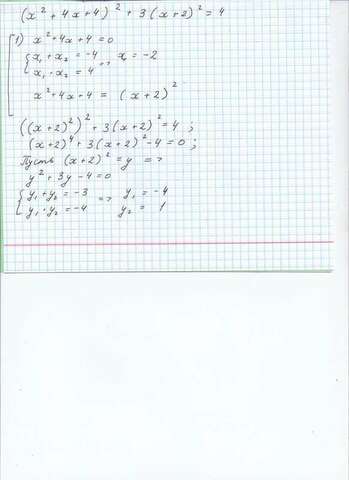 (x² + 4x + 4)² + 3(x+2)² = 4
1) x² + 4x + 4 = 0
{ x₁ + x₂ = -4 => x = -2
x₁ · x₂ = 4
x² + 4x + 4 = (x+2)²
((x+2)²)² + 3(x+2)² = 4 ;
(x+2)⁴ + 3(x+2)² - 4 = 0 ;
Пусть (x+2)² = y =>
y² + 3y - 4 = 0
{ y₁ + y₂ = -3 => y₁ = -4
y₁ · y₂ = -4 y₂ = 1